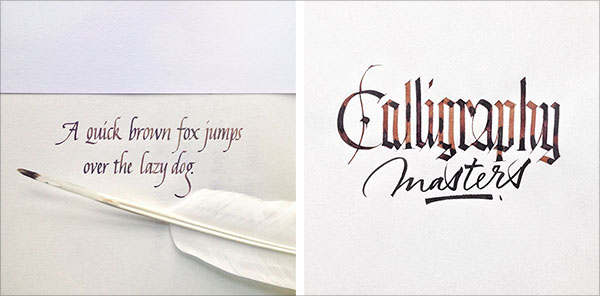 A quick brown fox jumps
over the lazy dog.
Calligraphy
masters